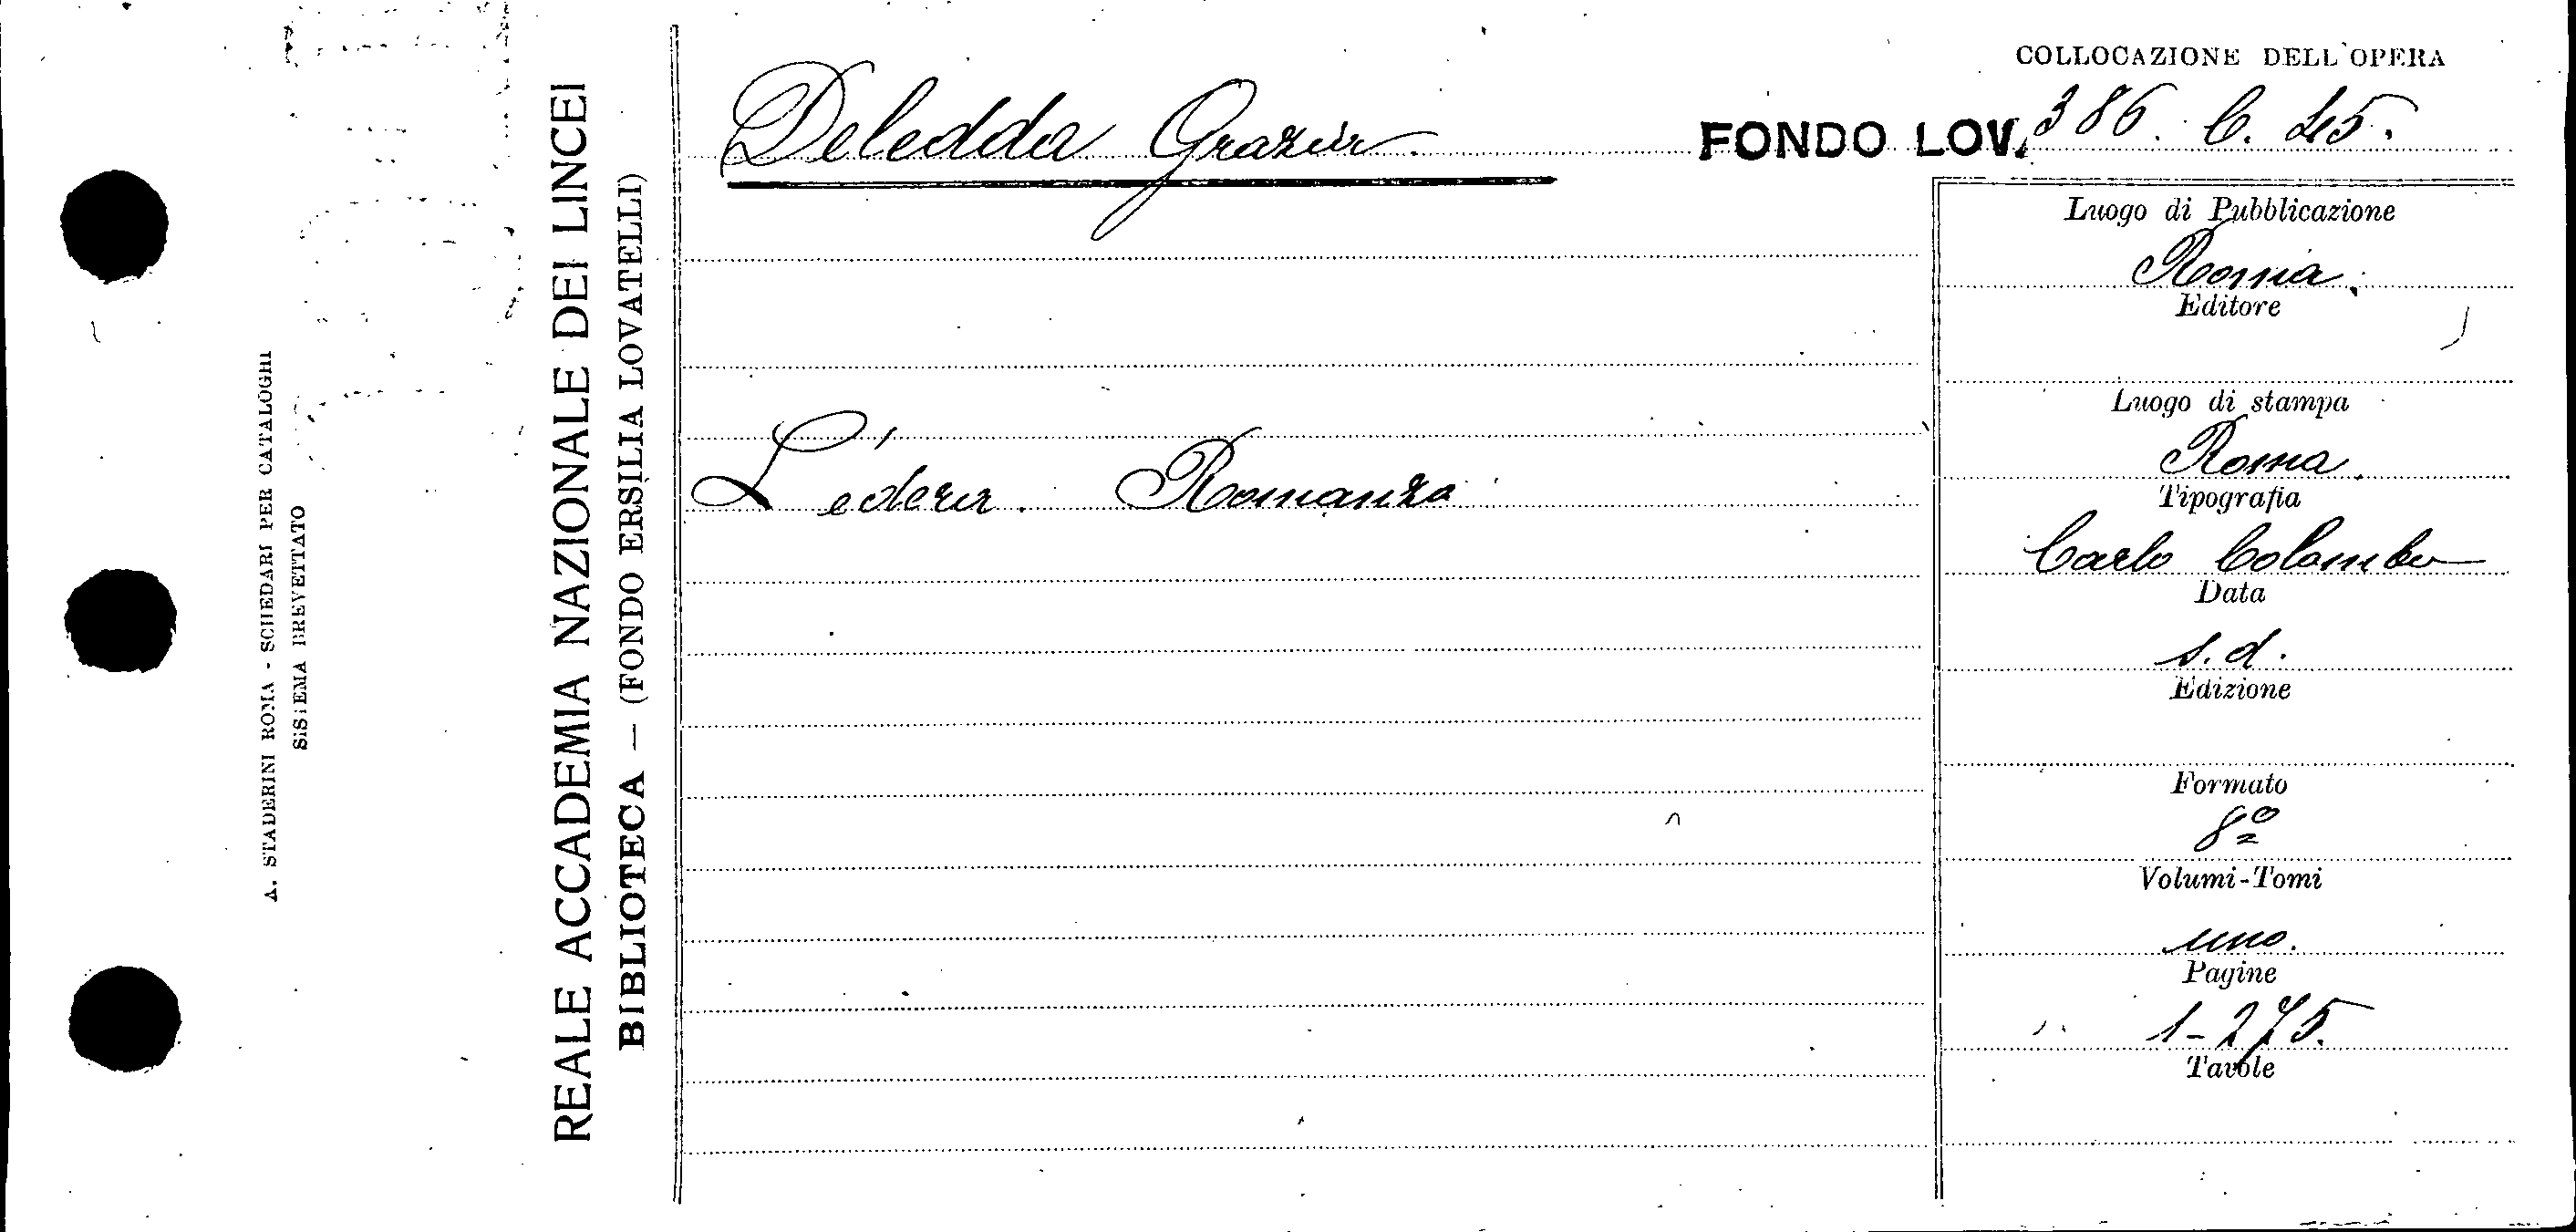 COLLOCAZIONE DELL'OPERA
Deledda Grazia.
FONDO LOV. 386. C. 45.
L'edera. Romanzo
Luogo di Pubblicazione
Roma.
Editore
Luogo di stampa
Roma.
Tipografia
Carlo Colombo
Data
s.d.
Edizione
Formato
8º
Volumi-Tomi
uno.
Pagine
1-275.
Tavole
REALE ACCADEMIA NAZIONALE DEI LINCEI
BIBLIOTECA — (FONDO ERSILIA LOVATELLI)
A. STADERINI ROMA - SCHEDARI PER CATALOGHI
SISTEMA BREVETTATO